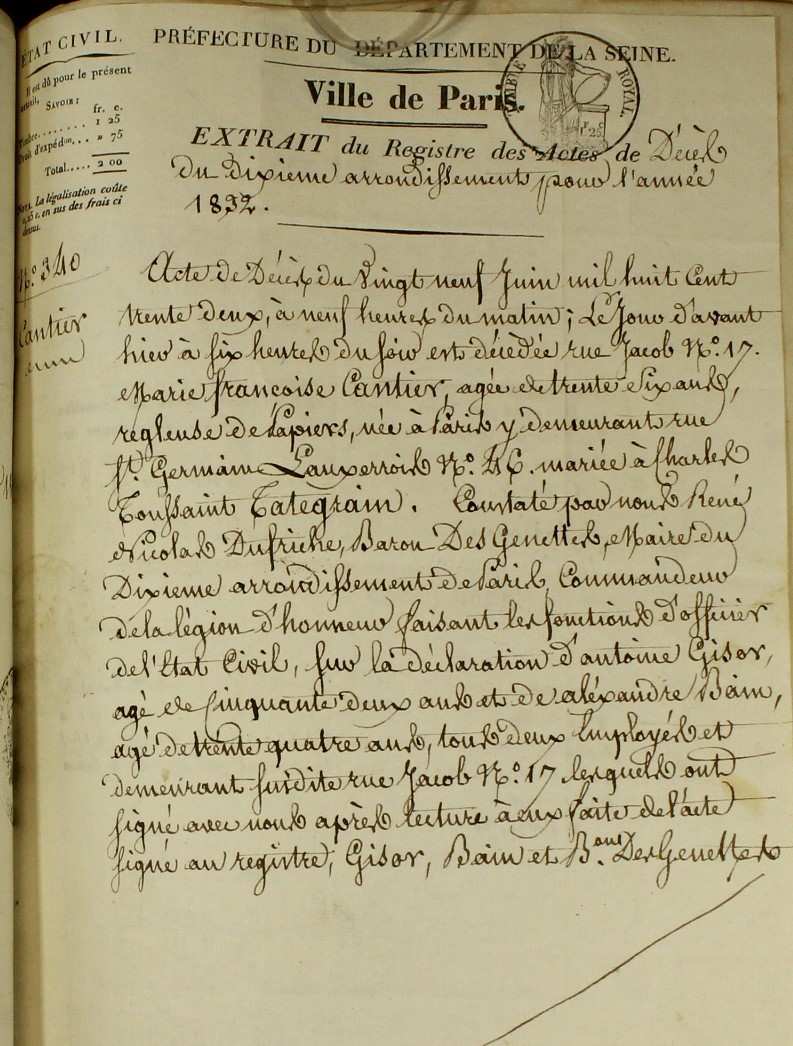 ÉTAT CIVIL.
Il est dû pour le présent
SAVOIR:
fr. c.
Timbre........ 1 25
Droit d'expéd.on... » 75
Total..... 2 00
NOTA. La légalisation coûte
25 c. en sus des frais ci
dessus.
N.o 340
Cantier
femme
PRÉFECTURE DU DÉPARTEMENT DE LA SEINE.
Ville de Paris.
TIMBRE ROYAL
1F 25c
EXTRAIT du Registre des Actes de Décès
du dixieme arrondissement pour l'année
1832.
Acte de Décès du Vingt neuf Juin mil huit Cent
trente deux, à neuf heures du matin; Le Jour d'avant
hier à six heures du soir est décédée rue Jacob N.o 17.
Marie françoise Cantier, agée de trente Six ans,
regleuse de Papiers, née à Paris y demeurant rue
St. Germain Lauxerrois N.o 46. mariée à Charles
Toussaint Tategrain. Constaté par nous René
Nicolas Dufriche, Baron Des Genettes, Maire du
Dixieme arrondissement de Paris, Commandeur
de la légion d'honneur faisant les fonctions d'officier
de l'Etat Civil, sur la déclaration d'antoine Gisor,
agé de Cinquante deux ans et de aléxandre Bain,
agé de trente quatre ans, tous deux Employés et
demeurant susdite rue Jacob N.o 17. lesquels ont
signé avec nous après lecture à eux faite de l'acte
signé au registre; Gisor, Bain et B.on Des Genettes